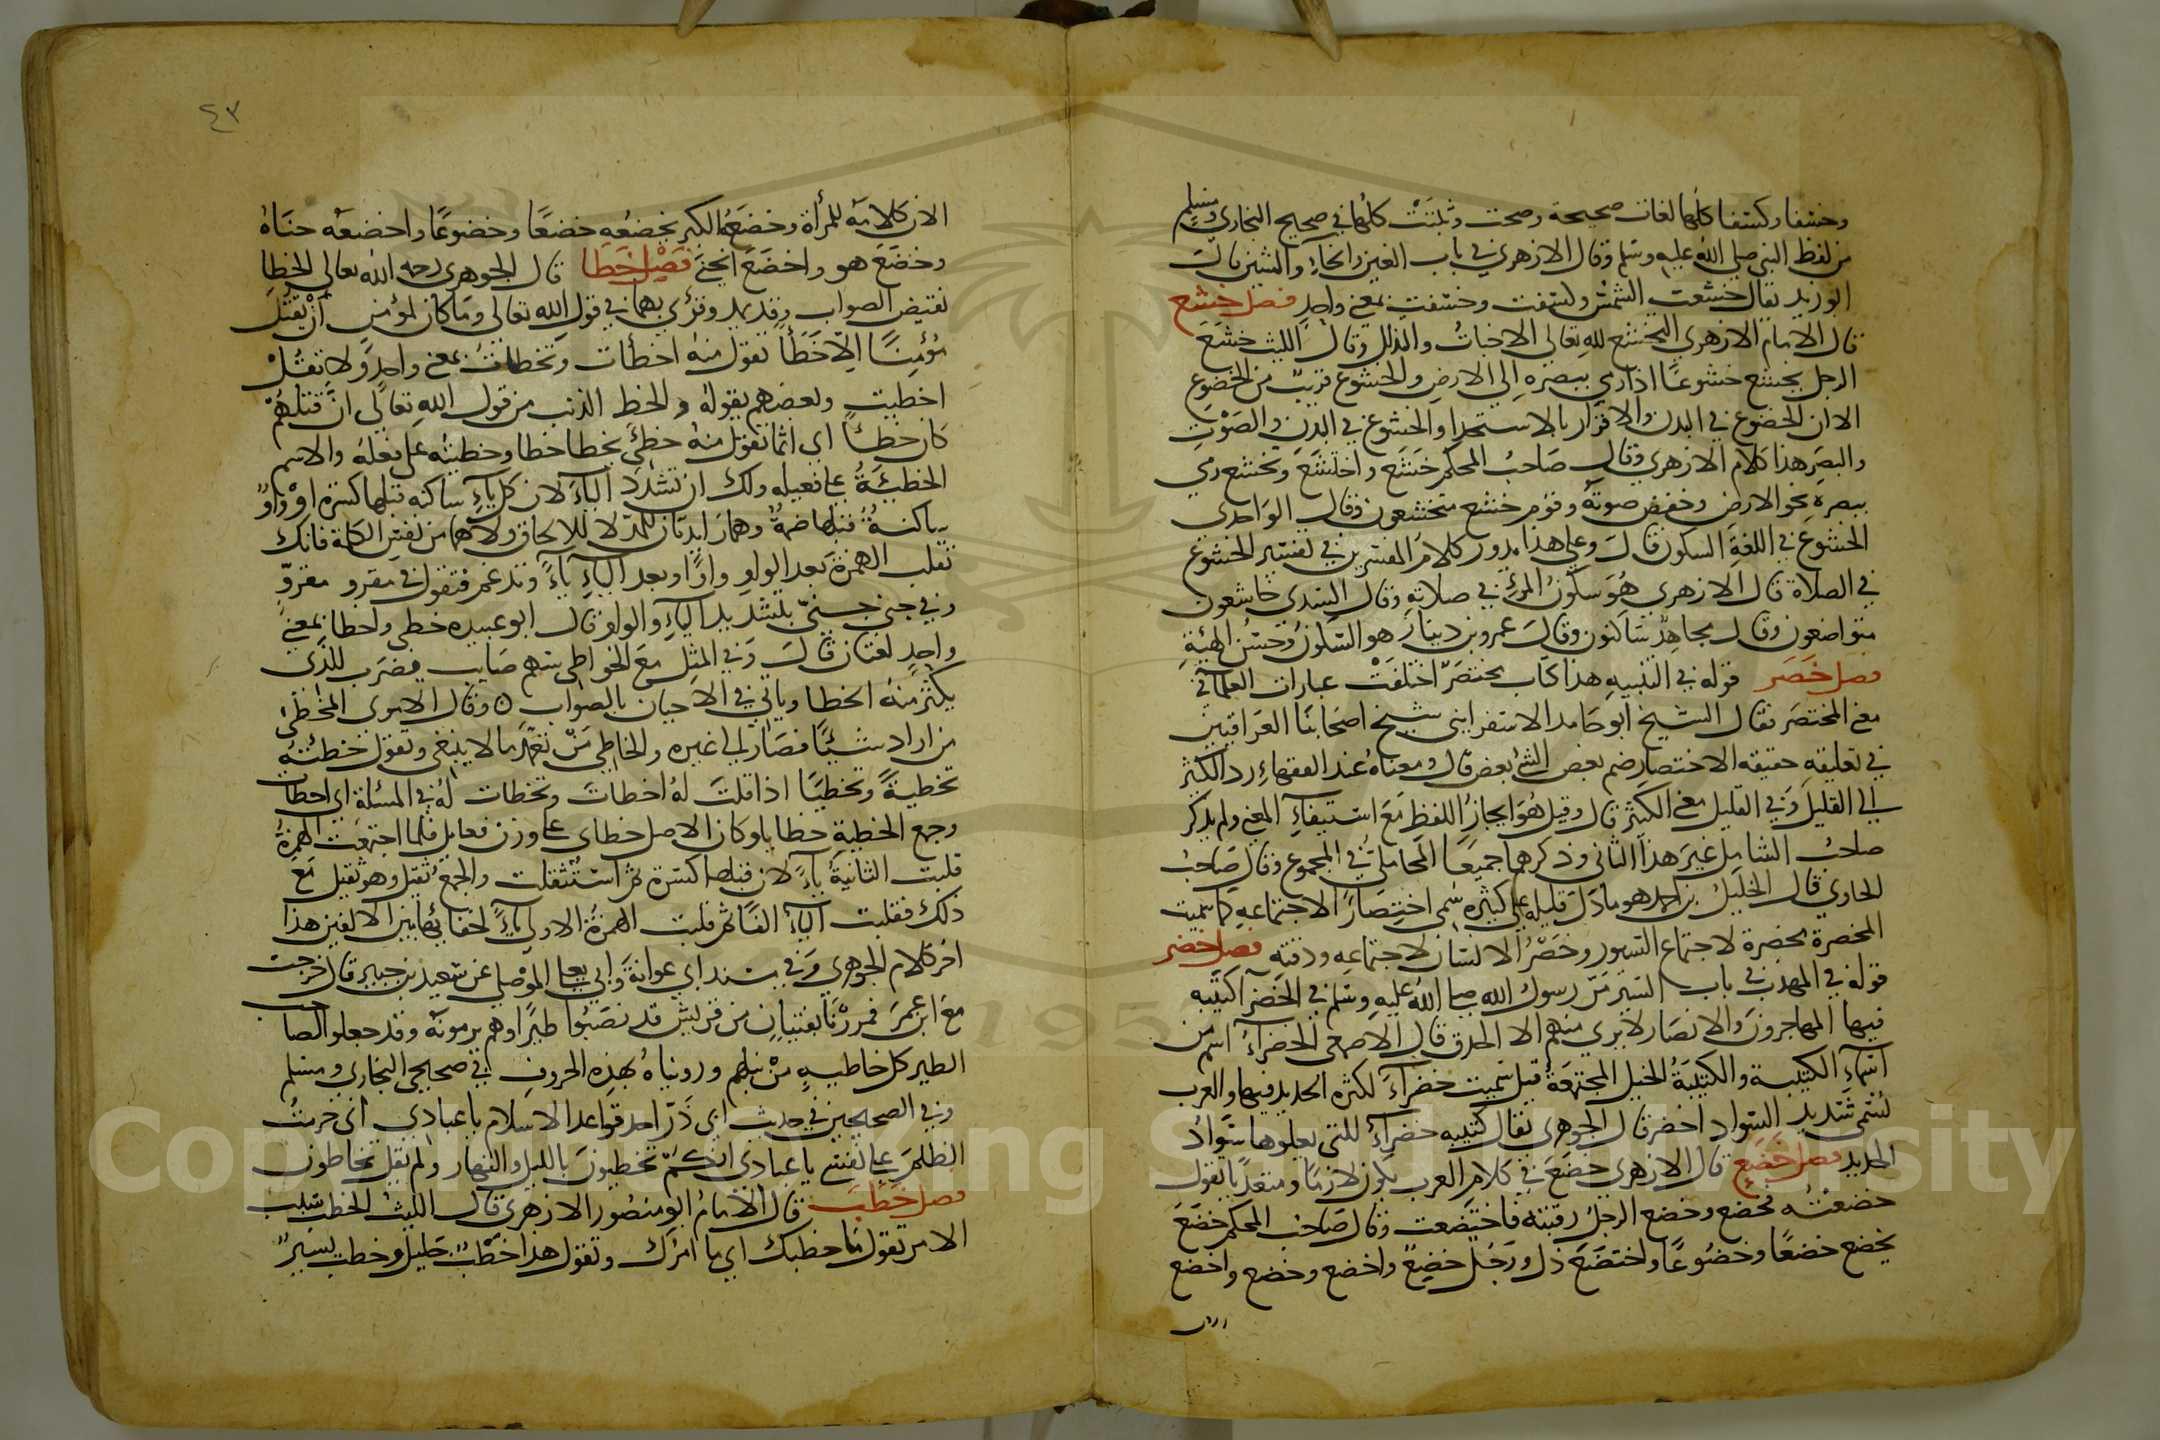 وخسفا وكسفا كلها لغات صحيحة وصحت وثبتت كلها في صحيح البخاري ومسلم
من لفظ النبي صلى الله عليه وسلم وقال الازهري في باب العين والخاء والشين قالت
ابو زيد يقال خشعت الشمس وكسفت وخسفت بمعنى واحد فصل خشع
قال الامام الازهري التخشع لله تعالى الاخبات والتذلل وقال الليث خشع
الرجل يخشع خشوعا اذا رمي ببصره الى الارض والخشوع قريب من الخضوع
الا ان الخضوع في البدن والاقرار بالاستخدا والخشوع في البدن والصوت
والبصر هذا كلام الازهري وقال صاحب المحكم خشع واختشع وتخشع رمي
ببصره نحو الارض وخفض صوته وقوم خشع متخشعون وقال الواحدي
الخشوع في اللغة السكون قال وعلى هذا يدور كلام المفسرين في تفسير الخشوع
في الصلاة قال الازهري هو سكون المرء في صلاته وقال السدي خاشعون
متواضعون وقال مجاهد ساكنون وقال عمرو بن دينار هو السكون وحسن الهيئة
فصل خصر قوله في التنبيه هذا كتاب مختصر اختلفت عبارات العلما في
معنى المختصر فقال الشيخ ابو حامد الاسفرايني شيخ اصحابنا العراقيين
في تعليقه حقيقة الاختصار ضم بعض الشئ بعض قال ومعناه عند الفقهاء رد الكثير
الى القليل وفي القليل معنى الكثير قال وقيل هو ايجاز اللفظ مع استيفاء المعنى ولم يذكر
صاحب الشامل غير هذا الثاني وذكرهما جميعا المحاملي في المجموع وقال صاحب
الحاوي قال الخليل بن احمد هو ما دل قليله على كثيره سمي اختصارا لاجتماعه كما سميت
المخصرة مخصرة لاجتماع السيور وخصر الانسان لاجتماعه ودقته فصل خضر
قوله في المهذب في باب السير مر رسول الله صلى الله عليه وسلم في الخضرا كتيبه
فيها المهاجرون والانصار لا يرى منهم الا الحدق قال الاصمعي الخضراء اسم من
اسماء الكتيبة والكتيبة الخيل المجتمعة قيل سميت خضراء لكثرة الحديد فيها والعرب
تسمي شديد السواد اخضر قال الجوهري يقال كتيبه خضراء للتي يعلوها سواد
الحديد فصل خضع قال الازهري خضع في كلام العرب يكون لازما ومتعديا تقول
خضعته فخضع وخضع الرجل رقبته فاختضعت وقال صاحب المحكم خضع
يخضع خضعا وخضوعا واختضع ذل ورجل خضيع واخضع وخضع واخضع
٤٣
الان كلامه للمرأة وخضعه الكبر يخضعه خضعا وخضوعا واخضعه حناه
وخضع هو واخضع انحنى فصل خطا قال الجوهري رحمه الله تعالى الخطا
نقيض الصواب وقد يمد وقرئ بهما في قول الله تعالى وما كان لمؤمن ان يقتل
مؤمنا الا خطأ تقول منه اخطأت وتخطات بمعنى واحد ولا تقل
اخطيت وبعضهم يقوله والخطء الذنب من قول الله تعالى ان قتلهم
كان خطئا اي اثما تقول منه خطئ يخطا خطا وخطيئة على فعله والاسم
الخطيئة على فعيله ولك ان تشدد الياء لان كل ياء ساكنه قبلها كسرة او واو
ساكنة قبلها ضمة وهما زايدتان للمد لا للالحاق ولا هما من نفس الكلمة فانك
تقلب الهمزة بعد الواو واوا وبعد الياء ياء وتدغم فتقول في مقروء مقرو
وفي خبئ خبي بتشديد الياء والواو قال ابو عبيده خطي واخطا بمعنى
واحد لغتان قال وفي المثل مع الخواطئ سهم صايب يضرب للذي
يكثر منه الخطا وياتي في الاحيان بالصواب ٥ وقال الاموي المخطئ
من اراد شيئا فصار الى غيره والخاطئ من تعمد ما لا ينبغي وتقول خطئته
تخطية وتخطيا اذا قلت له اخطات وتخطات له في المسئلة اي اخطات
وجمع الخطية خطايا وكان الاصل خطائ على وزن فعايل فلما اجتمعت الهمزة
قلبت الثانية ياء لان قبلها كسرة ثم استثقلت والجمع ثقيل وهو ثقيل مع
ذلك فقلبت الياء الفا ثم قلبت الهمزة الاولى ياء لخفائها بين الالفين هذا
اخر كلام الجوهري وفي مسند ابي عوانة وابي يعلى الموصلي عن سعيد بن جبير قال خرجت
مع ابن عمر فمررنا بفتيان من قريش قد نصبوا طيرا وهم يرمونه وقد جعلوا لصاحب
الطير كل خاطيه من نبلهم وروينا هذه الحروف في صحيحي البخاري ومسلم
وفي الصحيحين في حديث ابي ذر احد قواعد الاسلام يا عبادي اني حرمت
الظلم على نفسي يا عبادي انكم تخطيون بالليل والنهار ولم يقل تخاطون
فصل خطب قال الامام ابو منصور الازهري قال الليث الخطب سبب
الامر تقول ما خطبك اي ما امرك وتقول هذا خطب جليل وخطب يسير
Copyright © King Saud University
195